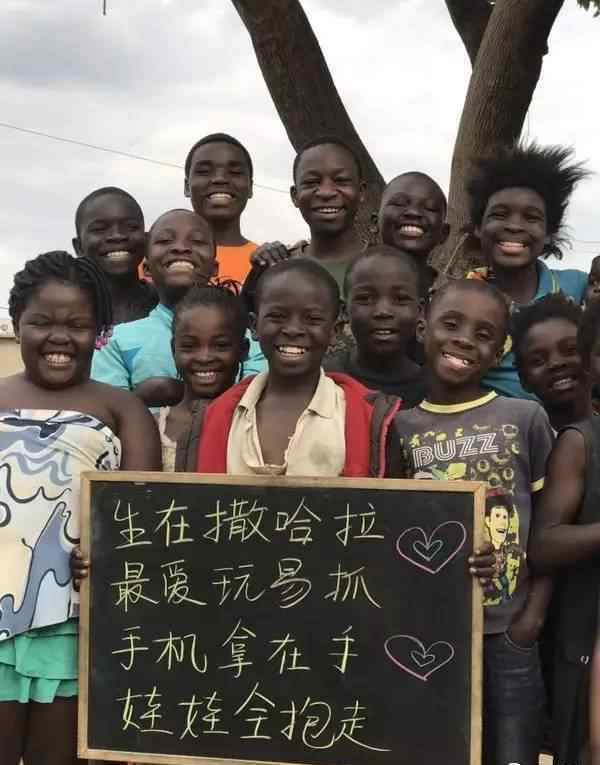 生在撒哈拉
最爱玩易抓
手机拿在手
娃娃全抱走
BUZZ